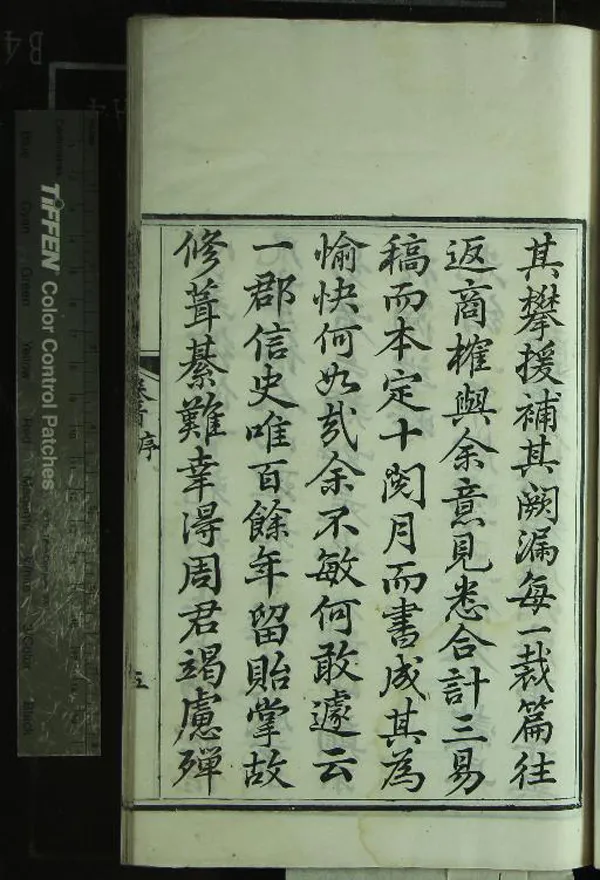 其攀援補其闕漏每一裁篇往
返商榷與余意見悉合計三易
稿而本定十閱月而書成其為
愉快何如哉余不敏何敢遽云
一郡信史唯百餘年留貽掌故
修葺綦難幸得周君竭慮殫
卷首 序
五
TIFFEN Color Control Patches
Blue
Cyan
Green
Yellow
Red
Magenta
White
3/Color
Black
B4